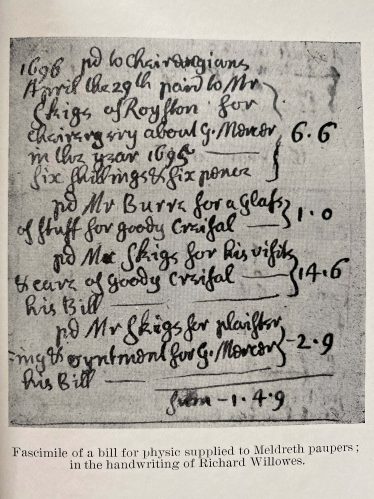 1696 pd to Cheirurgions
April the 29th paid to Mr
Skigs of Royston for
cheirurgery about G. Mercer
in the year 1695 6.6
six shillings & six pence
pd Mr Burre for a Glass
of stuff for goody Creifal 1.0
pd Mr Skigs for his visits
& care of Goody Creifal 14.6
his Bill
pd Mr Skigs for plaister
ing & oyntment for G. Mercer 2.9
his Bill
sum - 1.4.9
Fascimile of a bill for physic supplied to Meldreth paupers;
in the handwriting of Richard Willowes.